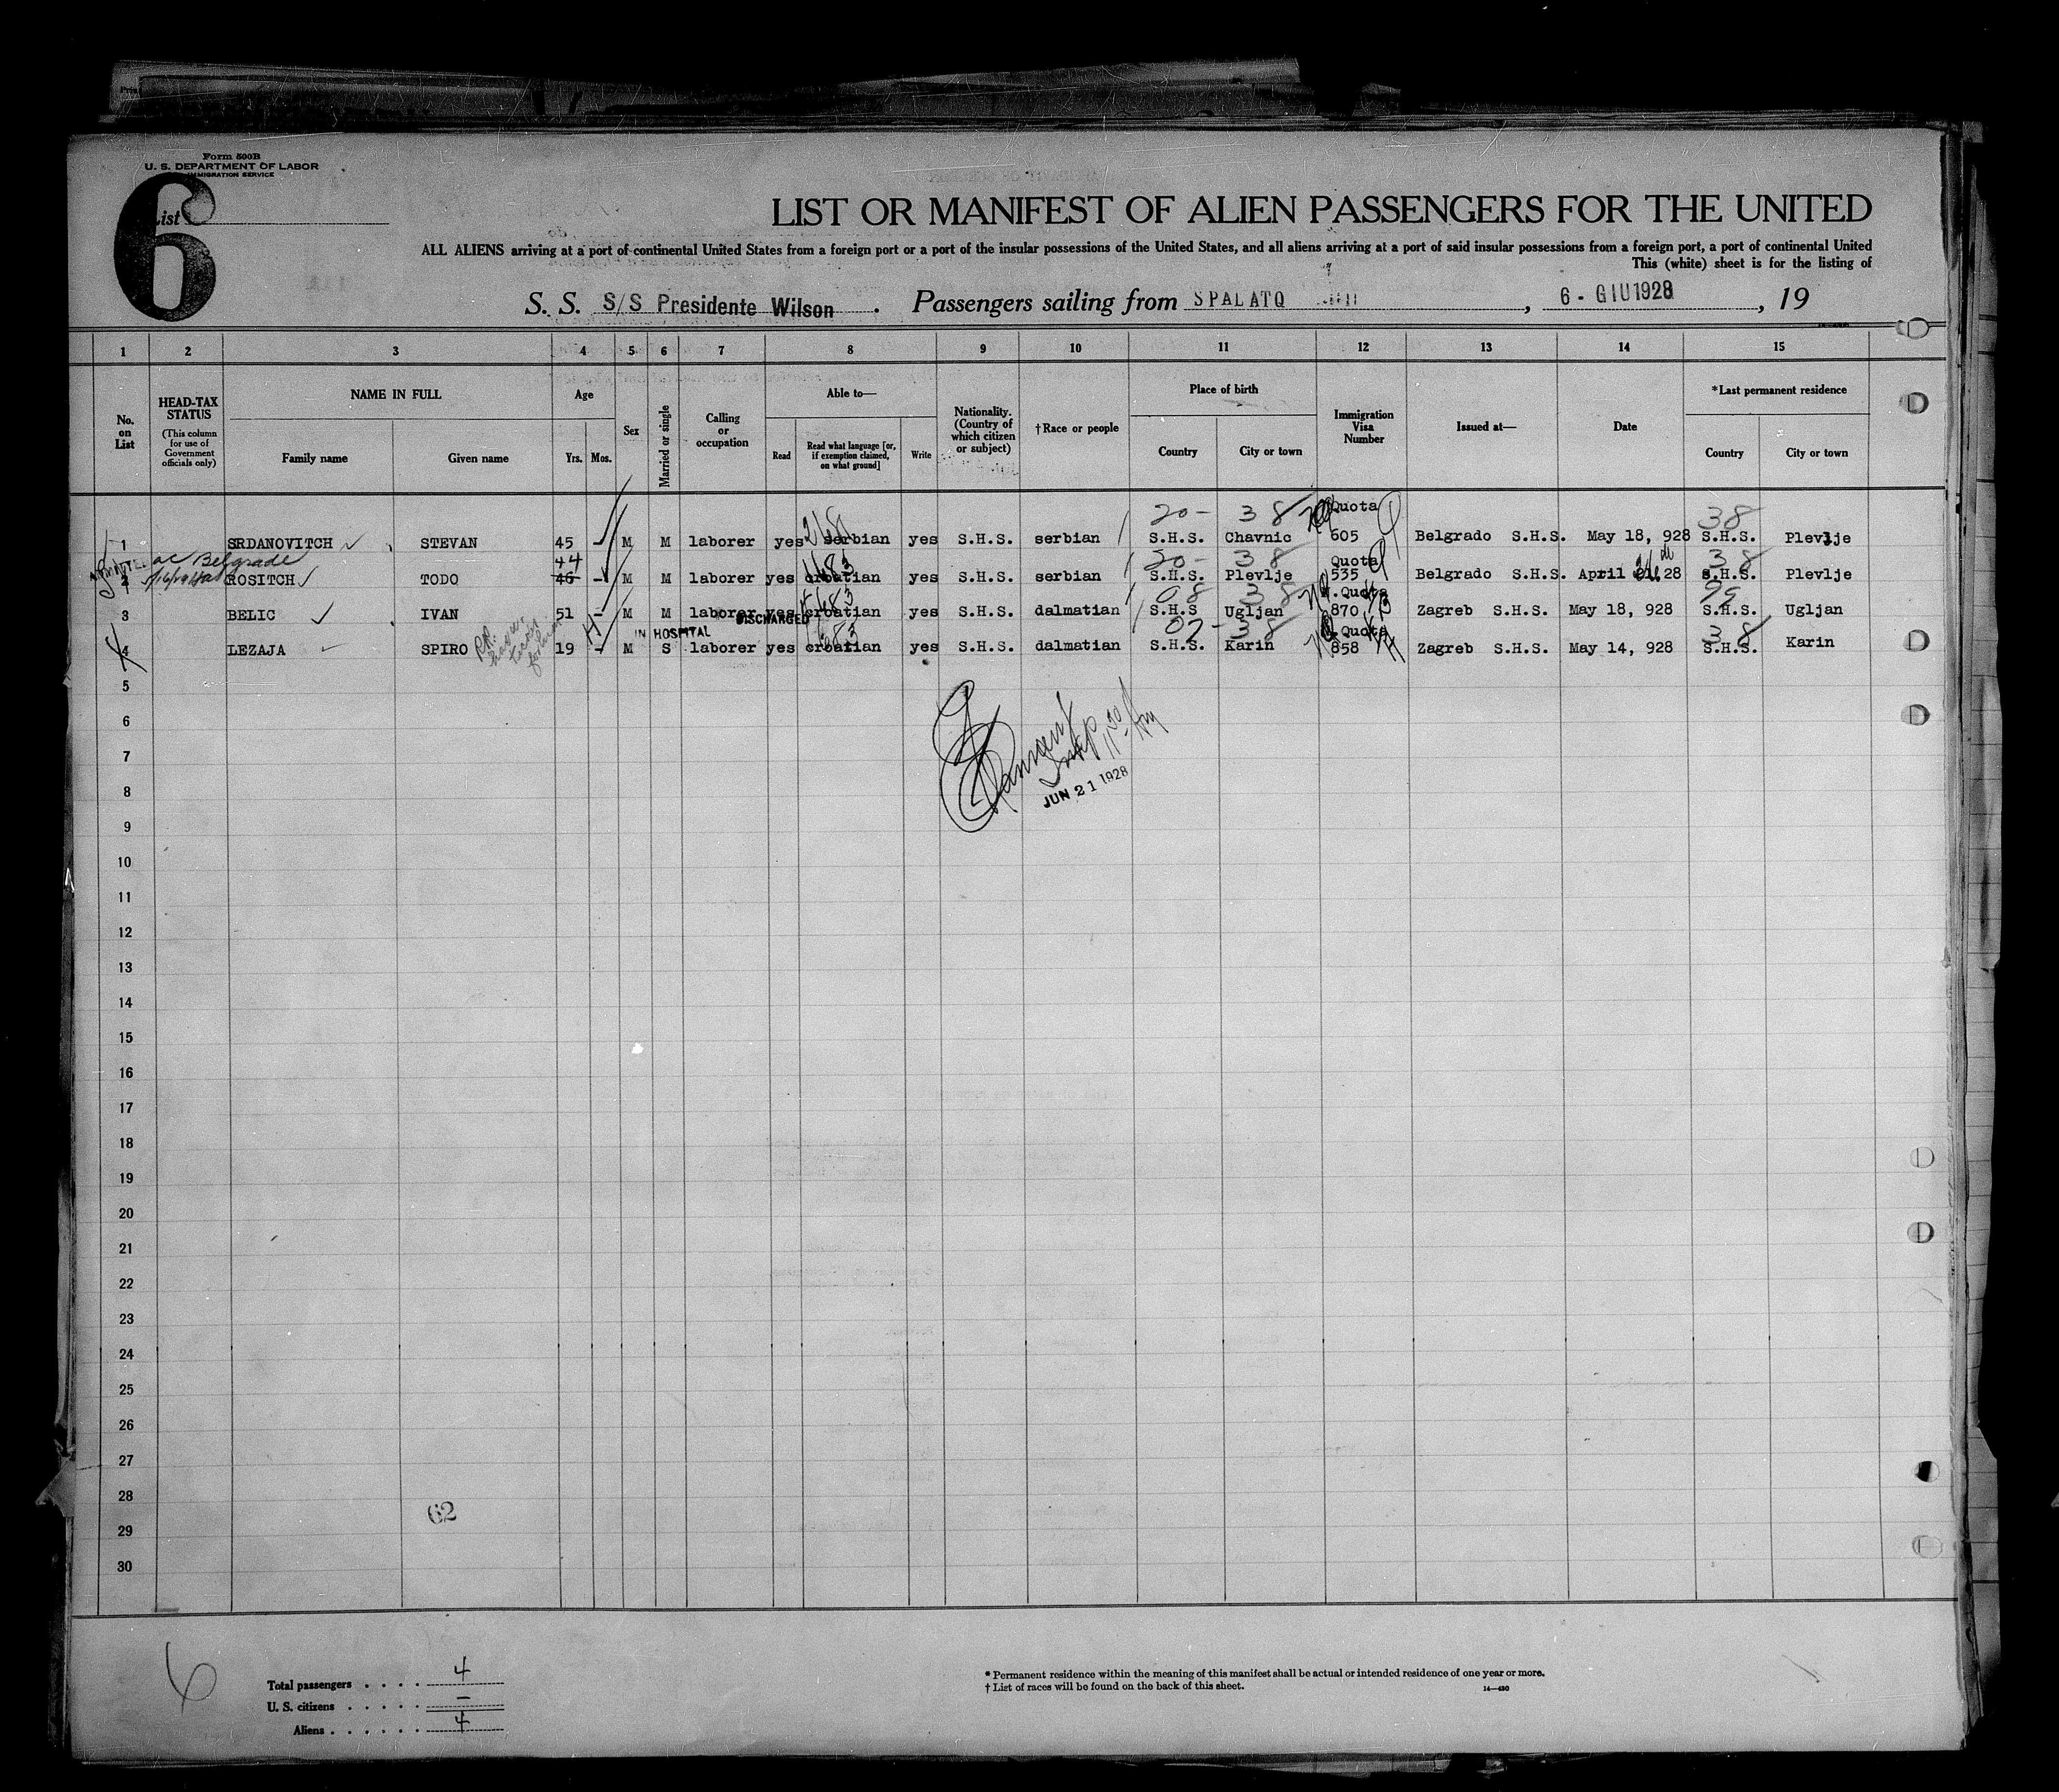 Form 500B
U. S. DEPARTMENT OF LABOR
IMMIGRATION SERVICE
List
6
LIST OR MANIFEST OF ALIEN PASSENGERS FOR THE UNITED
ALL ALIENS arriving at a port of continental United States from a foreign port or a port of the insular possessions of the United States, and all aliens arriving at a port of said insular possessions from a foreign port, a port of continental United
This (white) sheet is for the listing of
S. S. S/S Presidente Wilson . Passengers sailing from SPALATO , 6 - GIU 1928 , 19
1 2 3 4 5 6 7 8 9 10 11 12 13 14 15
No. on List
HEAD-TAX STATUS (This column for use of Government officials only)
NAME IN FULL
Family name Given name
Age
Yrs. Mos.
Sex
Married or single
Calling or occupation
Able to—
Read
Read what language [or, if exemption claimed, on what ground]
Write
Nationality. (Country of which citizen or subject)
†Race or people
Place of birth
Country City or town
Immigration Visa Number
Issued at—
Date
*Last permanent residence
Country City or town
20- 38 Quota 38
1 SRDANOVITCH STEVAN 45 - M M laborer yes serbian yes S.H.S. serbian S.H.S. Chavnic 605 Belgrado S.H.S. May 18, 928 S.H.S. Plevlje
ac Belgrade 44 20- 38 Quota 38
2 ROSITCH TODO 46 - M M laborer yes croatian yes S.H.S. serbian S.H.S. Plevlje 535 Belgrado S.H.S. April 28 S.H.S. Plevlje
08 38 Quota 99
3 BELIC IVAN 51 - M M laborer yes croatian yes S.H.S. dalmatian S.H.S Ugljan 870 Zagreb S.H.S. May 18, 928 S.H.S. Ugljan
IN HOSPITAL DISCHARGED 07- 38 Quota 38
4 LEZAJA SPIRO 19 - M S laborer yes croatian yes S.H.S. dalmatian S.H.S. Karin 858 Zagreb S.H.S. May 14, 928 S.H.S. Karin
5
6
7
JUN 21 1928
8
9
10
11
12
13
14
15
16
17
18
19
20
21
22
23
24
25
26
27
28
62
29
30
6
Total passengers . . . . 4
U. S. citizens . . . . . —
Aliens . . . . . . 4
* Permanent residence within the meaning of this manifest shall be actual or intended residence of one year or more.
† List of races will be found on the back of this sheet.
14—430